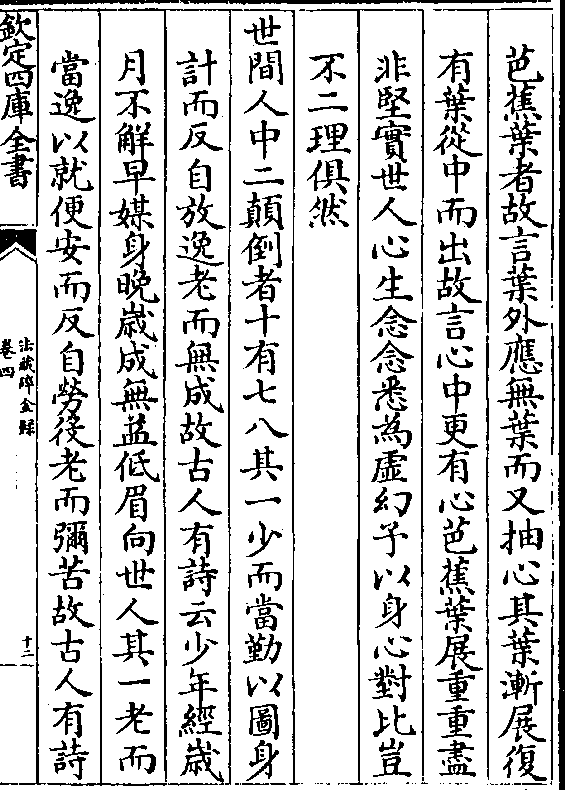 芭蕉葉者故言葉外應無葉而又抽心其葉漸展復
有葉從中而出故言心中更有心芭蕉葉展重重盡
非堅實世人心生念念悉為虚幻予以身心對比豈
不二理俱然
世間人中二顛倒者十有七八其一少而當勤以圖身
計而反自放逸老而無成故古人有詩云少年經歳
月不解早媒身晩歳成無益低眉向世人其一老而
當逸以就便安而反自勞役老而彌苦故古人有詩
欽定四庫全書
法藏碎金録
卷四
十二